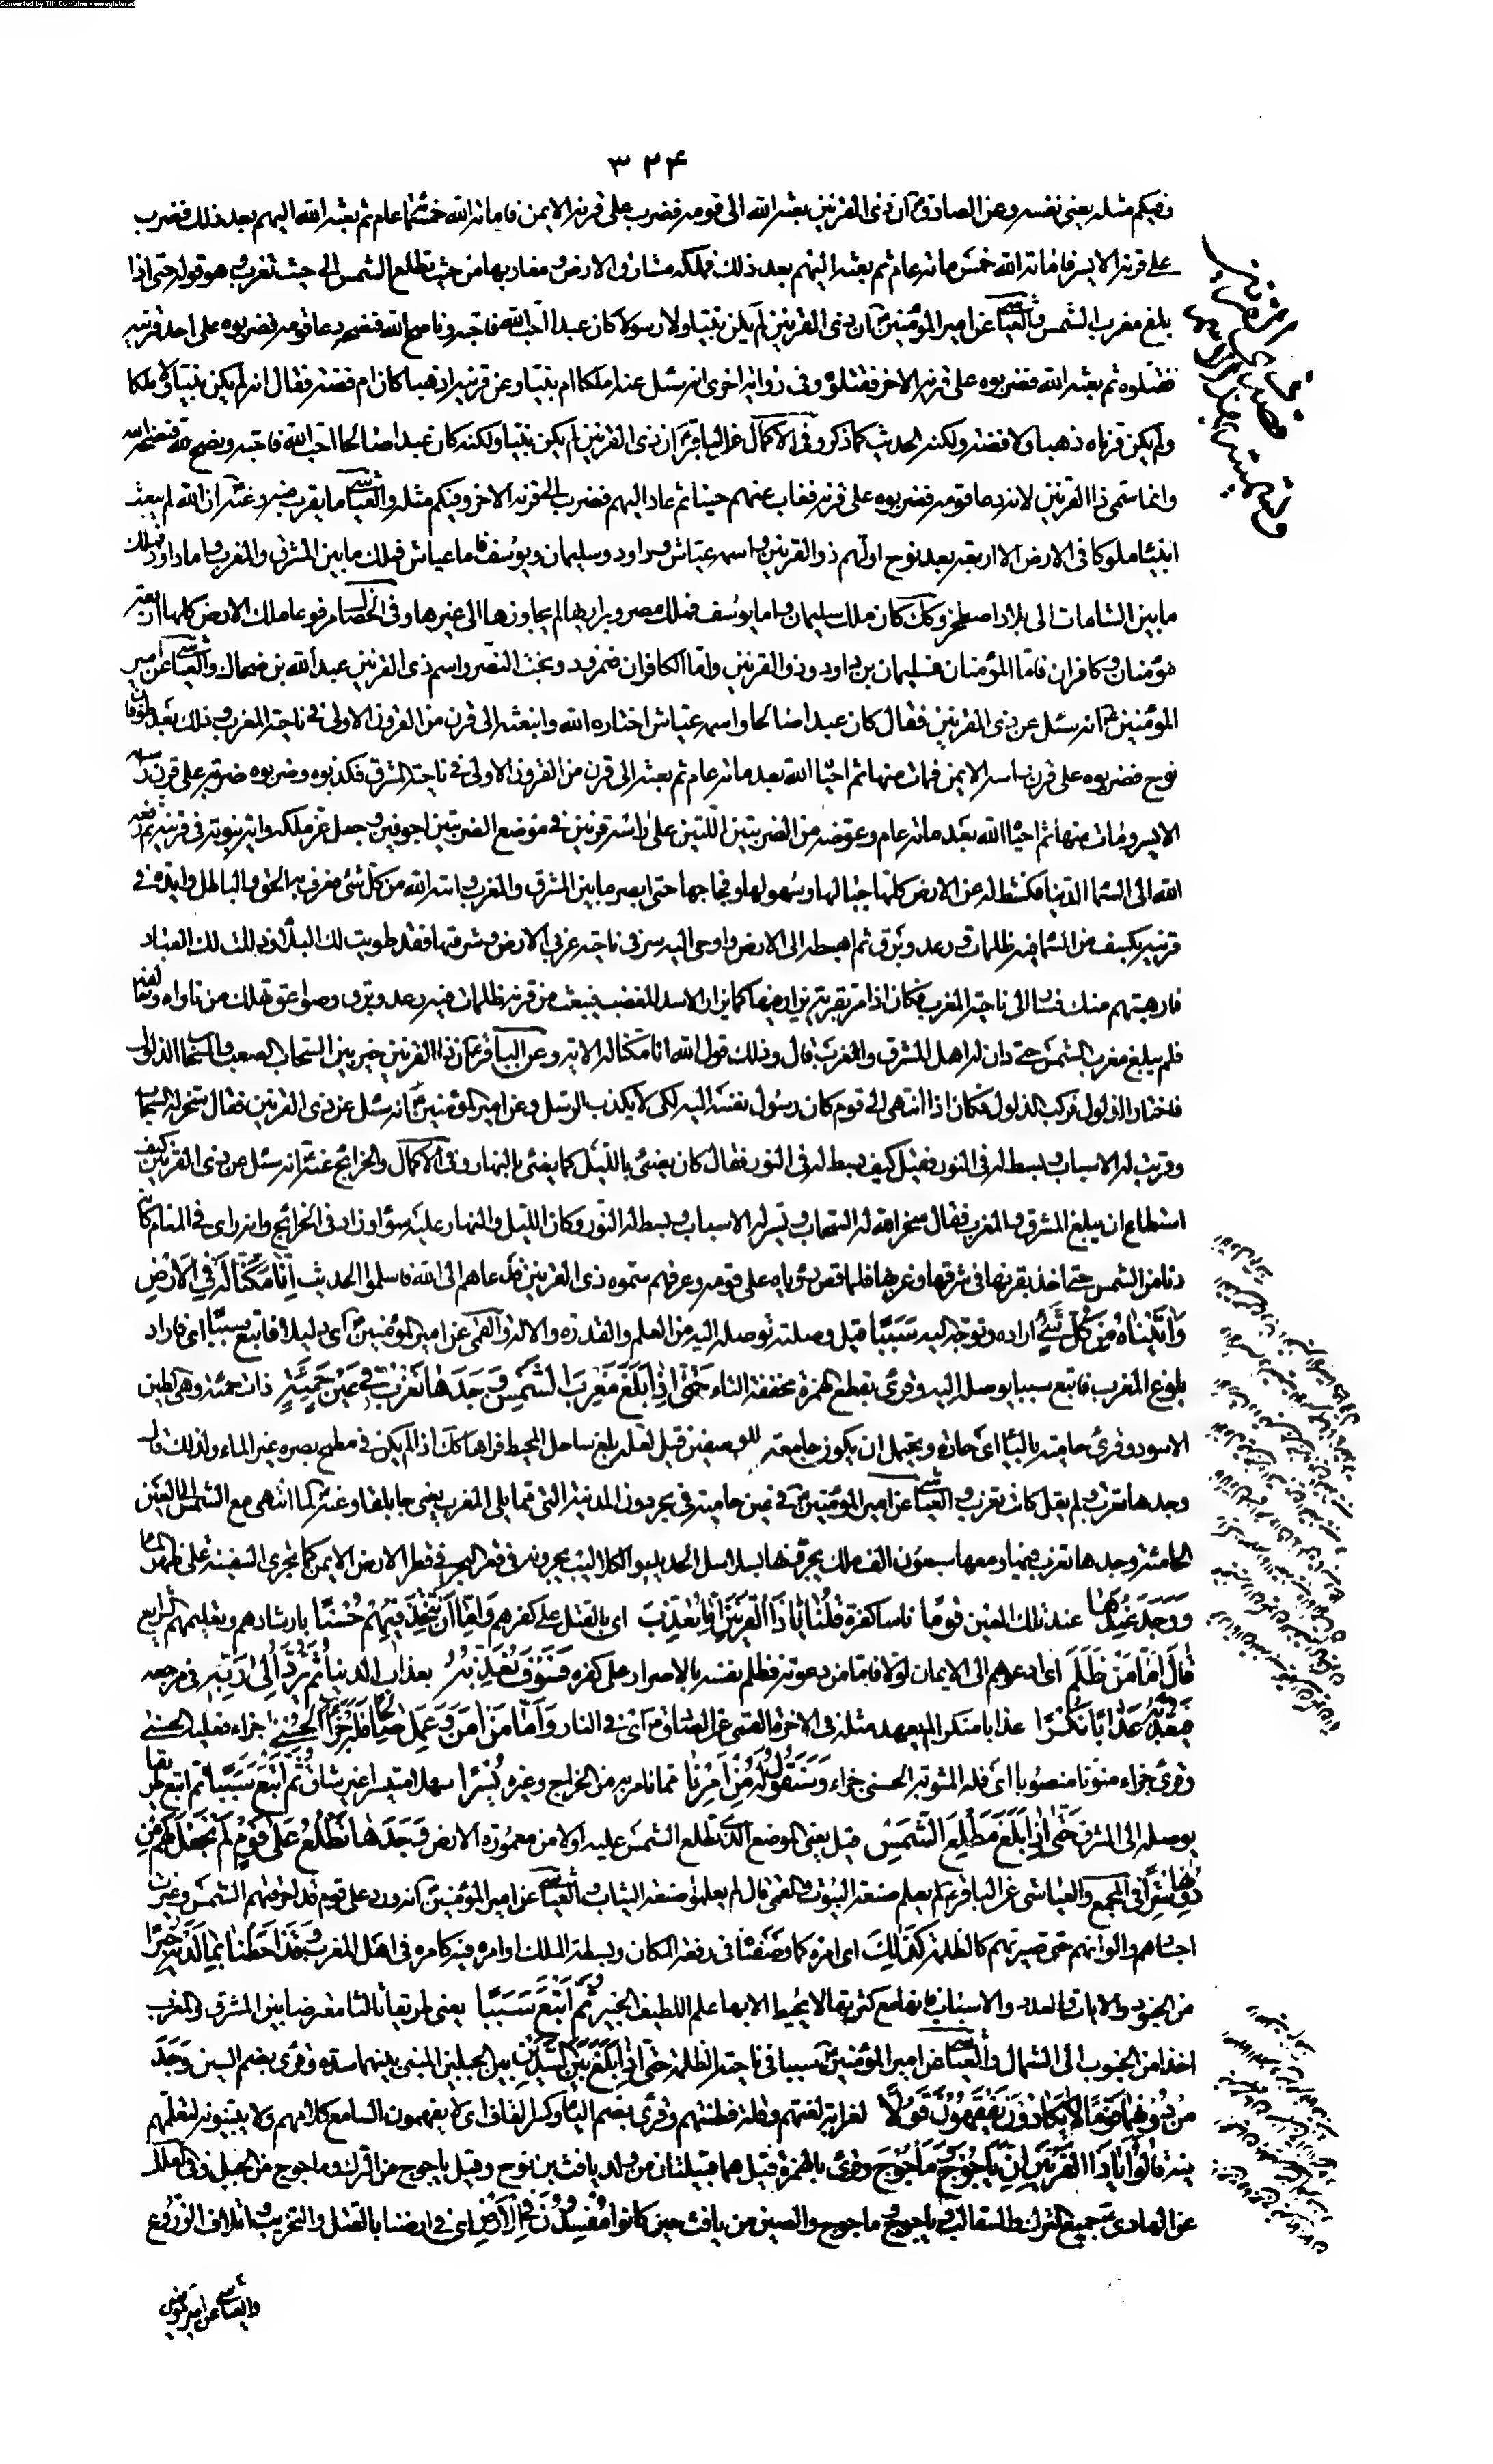 Converted by Tiff Combine - unregistered
۳۲۴
وفيكم مثله يعني نفسه وعن الصادق ان ذي القرنين بعثه الله الى قومه فضرب على قرنه الايمن فاماته الله خمسمائة عام ثم بعثه الله اليهم بعد ذلك فضرب
على قرنه الايسر فاماته الله خمس مائة عام ثم بعثه اليهم بعد ذلك فملكه مشارق الارض ومغاربها من حيث تطلع الشمس الى حيث تغرب وهو قوله حتى اذا
بلغ مغرب الشمس والعياشي عن امير المؤمنين ان ذي القرنين لم يكن نبيا ولا رسولا كان عبدا احب الله فاحبه وناصح الله فنصحه دعا قومه فضربوه على احد قرنيه
فقتلوه ثم بعثه الله فضربوه على قرنه الاخر فقتلوه وفي رواية اخرى انه سئل عنه املكا ام نبيا وعن قرنيه اذهبا كان ام فضة فقال انه لم يكن نبيا ولا ملكا
ولم يكن قرناه ذهبا ولا فضة ولكنه الحديث كما ذكر وفي الاكمال عن الباقر ان ذي القرنين لم يكن نبيا ولكنه كان عبدا صالحا احب الله فاحبه ونصح لله فنصحه الله
وانما سمي ذا القرنين لانه دعا قومه فضربوه على قرنه فغاب عنهم حينا ثم عاد اليهم فضرب الى قرنه الاخر وفيكم مثله والعياشي ما يقرب منه وعنه ان الله لم يبعث
انبياء ملوكا في الارض الا اربعة بعد نوح اولهم ذو القرنين واسمه عياش وداود وسليمان ويوسف فاما عياش فملك ما بين المشرق والمغرب واما داود فملك
ما بين الشامات الى بلاد اصطخر وكك كان ملك سليمان واما يوسف فملك مصر وبراريها لم يجاوزها الى غيرها وفي الخصال مرفوعا ملك الارض كلها اربعة
مؤمنان وكافران فاما المؤمنان فسليمان بن داود وذو القرنين واما الكافران فنمرود وبخت النصر واسم ذي القرنين عبد الله بن ضحاك والعياشي عن امير
المؤمنين انه سئل عن ذي القرنين فقال كان عبدا صالحا واسمه عياش اختاره الله وابتعثه الى قرن من القرون الاولى في ناحية المغرب وذلك بعد طوفان
نوح فضربوه على قرن راسه الايمن فمات منها ثم احياه الله بعد مائة عام ثم بعثه الى قرن من القرون الاولى في ناحية المشرق فكذبوه وضربوه ضربة على قرن راسه
الايسر ومات منها ثم احياه الله بعد مائة عام وعوضه من الضربتين اللتين على راسه قرنين في موضع الضربتين اجوفين وجعل عز ملكه واية نبوته في قرنيه ثم رفعه
الله الى السماء الدنيا فكشط له عن الارض كلها جبالها وسهولها وفجاجها حتى ابصر ما بين المشرق والمغرب واتاه الله من كل شئ فعرف به الحق والباطل وايده في
قرنيه بكسف من السماء فيه ظلمات ورعد وبرق ثم اهبطه الى الارض واوحى اليه سر في ناحية غربي الارض وشرقيها فقد طويت لك البلاد وذللت لك العباد
فارهبتهم منك فسار الى ناحية المغرب فكان اذا مر بقرية يزار فيها كما يزار الاسد المغضب فينبعث من قرنيه ظلمات فيه رعد وبرق وصواعق تهلك من ناواه وخالفه
فلم يبلغ مغرب الشمس حتى دان له اهل المشرق والمغرب قال وذلك قول الله انا مكنا له الاية وعن الباقر ان ذا القرنين خير بين السحاب الصعب والسحاب الذلول
فاختار الذلول فركب الذلول فكان اذا انتهى الى قوم كان رسول نفسه اليه لكى لا يكذب الرسل وعن امير المؤمنين انه سئل عن ذي القرنين فقال سخر له السحاب
وقربت له الاسباب وبسط له في النور فقيل كيف بسط له في النور فقال كان يضئ بالليل كما يضئ بالنهار وفي الاكمال والخرائج عنه انه سئل عن ذي القرنين كيف
استطاع ان يبلغ المشرق والمغرب فقال سخر الله له السحاب ويسر له الاسباب وبسط له النور وكان الليل والنهار عليه سواء وزاد في الخرائج وانه راى في المنام كانه
دنا من الشمس حتى اخذ بقرنيها في شرقها وغربها فلما قص رؤياه على قومه وعرفهم سموه ذي القرنين فدعاهم الى الله فاسلموا الحديث إنا مكنا له في الأرض
وآتيناه من كل شئ اراده وتوجه اليه سببا قيل وصلة توصله اليه من العلم والقدرة والالة والقمي عن امير المؤمنين اي دليلا فأتبع سببا اي فاراد
بلوغ المغرب فاتبع سببا يوصله اليه وقرئ بقطع الهمزة مخففة التاء حتى إذا بلغ مغرب الشمس وجدها تغرب في عين حمئة ذات حمئة وهي الطين
الاسود وقرئ حامية بالياء اي حارة ويحتمل ان يكون جامعة للوصفين قيل لعله بلغ ساحل المحيط فراها كك اذ لم يكن في مطمح بصره غير الماء ولذلك قال
وجدها تغرب ولم يقل كانت تغرب والعياشي عن امير المؤمنين في عين حامية في بحر دون المدينة التي مما يلي المغرب يعني جابلقا وعنه لما انتهى مع الشمس الى العين
الحامئة وجدها تغرب فيها ومعها سبعون الف ملك يجرونها بسلاسل الحديد والكلاليب يجرونه في قعر البحر في قطر الارض الايمن كما تجرى السفينة على ظهر الماء
ووجد عندها عند تلك العين قوما ناسا كفرة قلنا يا ذا القرنين إما أن تعذب اي بالقتل على كفرهم وإما أن تتخذ فيهم حسنا بارشادهم وتعليمهم الشرايع
قال أما من ظلم اي ادعوهم الى الايمان اولا فاما من دعوته فظلم نفسه بالاصرار على كفره فسوف نعذبه بعذاب الدنيا ثم يرد إلى ربه في مرجعه
فيعذبه عذابا نكرا عذابا منكرا لم يعهد مثله في الاخرة القمي عن الصادق اي في النار وأما من آمن وعمل صالحا فله جزاء الحسنى جزاء فعله الحسنى
وقرئ جزاء منونا منصوبا اي فله المثوبة الحسنى جزاء وسنقول له من أمرنا مما نامر به من الخراج وغيره يسرا سهلا متيسرا غير شاق ثم أتبع سببا ثم اتبع طريقا
يوصله الى المشرق حتى إذا بلغ مطلع الشمس قيل يعني الموضع الذي تطلع الشمس عليه اولا من معمورة الارض وجدها تطلع على قوم لم نجعل لهم من
دونها سترا في المجمع والعياشي عن الباقر لم يعلم صنعة البيوت القمي قال لم يعلموا صنعة الثياب والعياشي عن امير المؤمنين انه ورد على قوم قد احرقتهم الشمس وغيرت
اجسامهم والوانهم حتى صيرتهم كالظلمة كذلك اي امره كما وصفنا في رفعة المكان وبسطة الملك او امره فيه كامره في اهل المغرب وقد أحطنا بما لديه خبرا
من الجنود والالات والعدد والاسباب فانها مع كثرتها لا يحيط الا بها علم اللطيف الخبير ثم أتبع سببا يعني طريقا ثالثا معترضا بين المشرق والمغرب
اخذا من الجنوب الى الشمال والعياشي عن امير المؤمنين سببا في ناحية الظلمة حتى إذا بلغ بين السدين بين الجبلين المبني بينهما سده وقرئ بضم السين وجد
من دونهما قوما لا يكادون يفقهون قولا لغرابة لغتهم وقلة فطنتهم وقرئ بضم الياء وكسر القاف اي لا يفهمون السامع كلامهم ولا يبينونه لتعلثمهم
فيه قالوا يا ذا القرنين إن يأجوج ومأجوج وقرئ بالهمزة قيل هما قبيلتان من ولد يافث بن نوح وقيل ياجوج من الترك وماجوج من الجبل وفي العلل
عن الهادي جميع الترك والسقالب وياجوج وماجوج والصين من يافث حين كانوا مفسدون في الأرض اي في ارضنا بالقتل والتخريب واتلاف الزروع
والعياشي عن امير المؤمنين